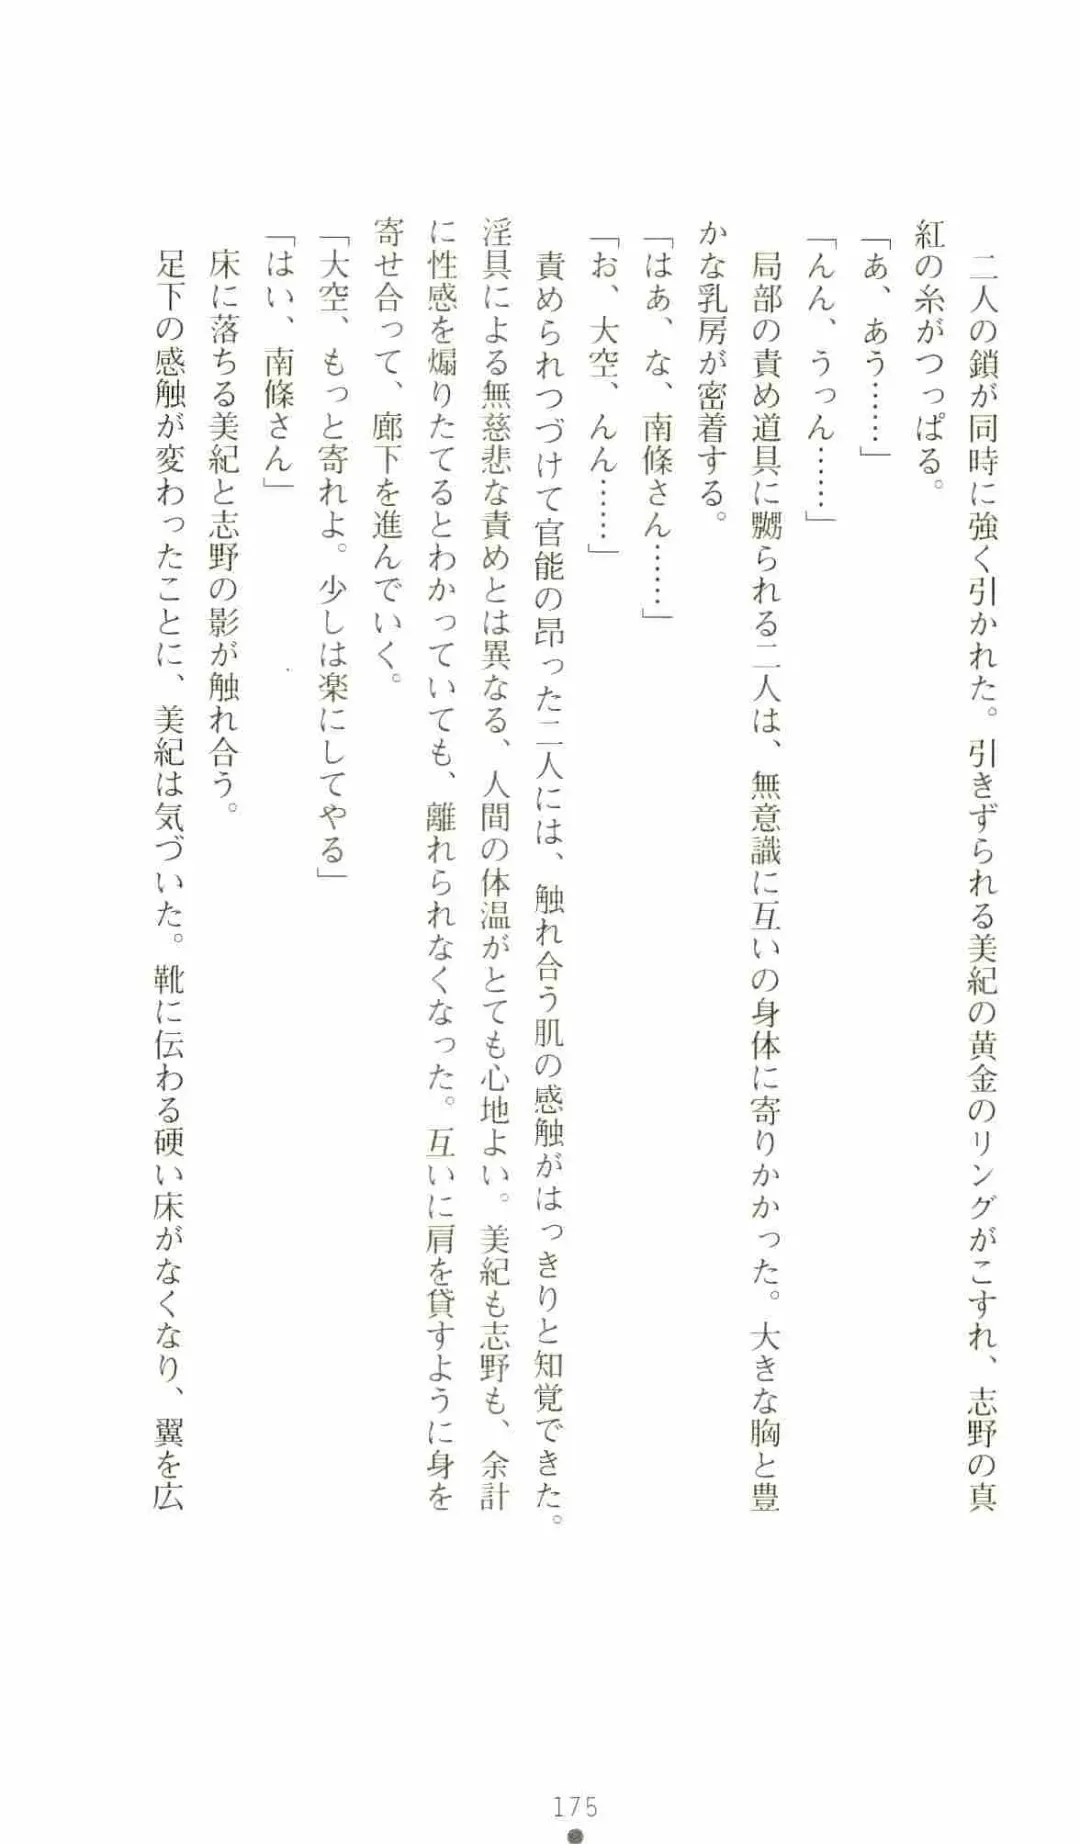 二人の鎖が同時に強く引かれた。引きずられる美紀の黄金のリングがこすれ、志野の真
紅の糸がつっぱる。
「あ、あう……」
「んん、うっん……」
局部の責め道具に嬲られる二人は、無意識に互いの身体に寄りかかった。大きな胸と豊
かな乳房が密着する。
「はぁ、な、南條さん……」
「お、大空、んん……」
責められつづけて官能の昂った二人には、触れ合う肌の感触がはっきりと知覚できた。
淫具による無慈悲な責めとは異なる、人間の体温がとても心地よい。美紀も志野も、余計
に性感を煽りたてるとわかっていても、離れられなくなった。互いに肩を貸すように身を
寄せ合って、廊下を進んでいく。
「大空、もっと寄れよ。少しは楽にしてやる」
「はい、南條さん」
床に落ちる美紀と志野の影が触れ合う。
足下の感触が変わったことに、美紀は気づいた。靴に伝わる硬い床がなくなり、翼を広
175